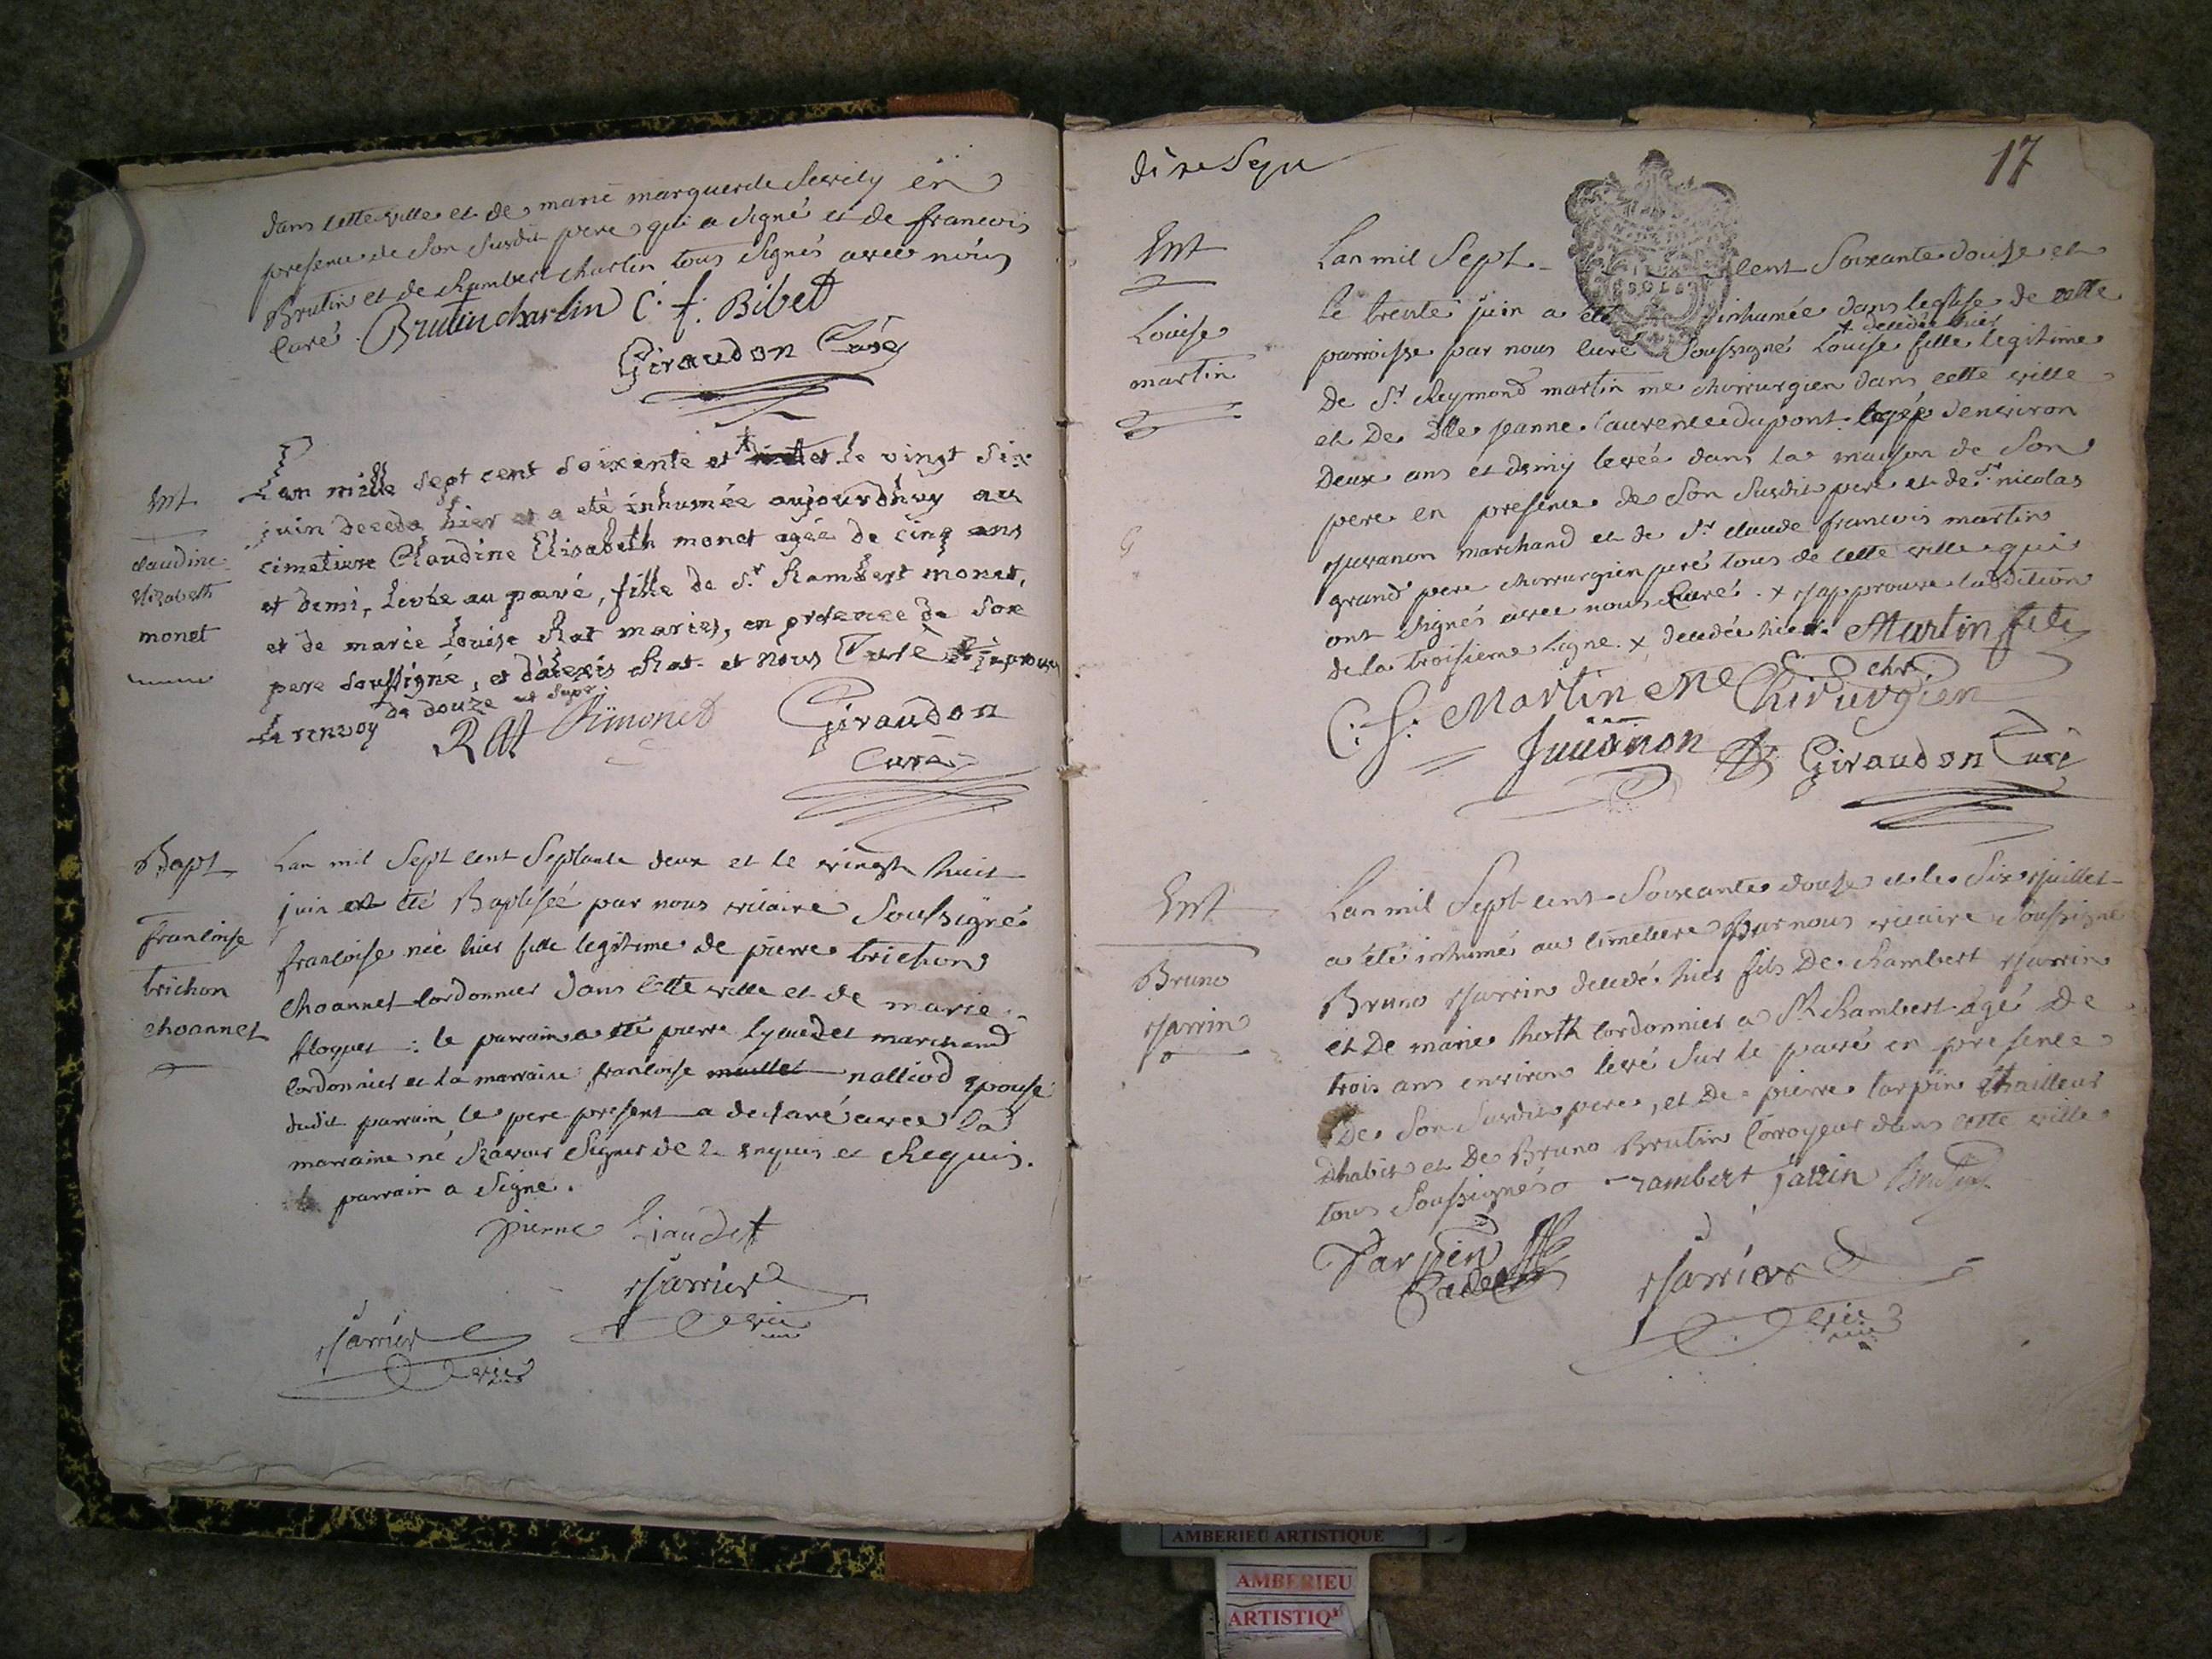 dans cette ville et de marie marguerite en
presence de son susdit pere qui a signé et de francois
Brutin et de Rambert charlin tous signés avec nous
curé. Brutin charlin C. f. Bibet
Giraudon Curé
Ent
claudine
Elizabeth
monet
Lan mille sept cent soixente et le vingt six
juin decede hier et a eté inhumée aujourdhuy au
cimetiere Claudine Elisabeth monet agée de cinq ans
et demi, levée au pavé, fille de Sr. Rambert monet,
et de marie Louise Rat maries, en presence de son
pere soussigné, et dalexis Rat et nous Curé
le renvoy de douze
Rat Rimonet Giraudon
Curé
Bapt
francoise
trichon
choannet
Lan mil sept cent septante deux et le vingt huit
juin eté Baptisée par nous vicaire soussigné
francoise née hier fille legitime de pierre trichon
choannet cordonnier dans cette ville et de marie
floquet : le parrain a eté pierre lyaudet marchand
cordonnier et la marraine francoise nalliod epouse
dudit parrain le pere present a declaré avec la
marraine ne scavoir signer de ce enquis et Requis.
le parrain a signé.
pierre Liaudet
Jarrier
vic
Jarrier
vic
17
Ent
Louise
martin
Lan mil sept cent soixante douze et
le trente juin a eté inhumée dans leglise de cette
+ decedée hier
parroisse par nous curé soussigné Louise fille legitime
de Sr Reymond martin me chirurgien dans cette ville
et de dlle jeanne laurence dupont agée denviron
deux ans et demij levée dans la maison de son
pere en presence de son susdit pere et de Sr nicolas
juvanon marchand et de Sr claude francois martin
grand pere chirurgien juré tous de cette ville qui
ont signés avec nous Curé. x japprouve laddition
de la troisieme ligne x decedée hier. Martin fils
chr
C. f. Martin Me Chirurgien
Juuanon Giraudon Curé
Ent
Bruno
Jarrin
Lan mil sept cent soixante douze et le six juillet
a été inhumé au cimetiere par nous vicaire soussigné
Bruno Jarrin decedé hier fils de Rambert Jarrin
et de marie Roth cordonnier a St Rambert agé de
trois ans environ levé sur le pavé en presence
de son susdit pere, et de pierre tarpin thailleur
dhabit et de Bruno Brutin Corroyeur dans cette ville
tous soussignés rambert jarrin Brutin
Tarpin
Cadet
Jarrier
vic
AMBERIEU ARTISTIQUE
AMBERIEU
ARTISTIQ